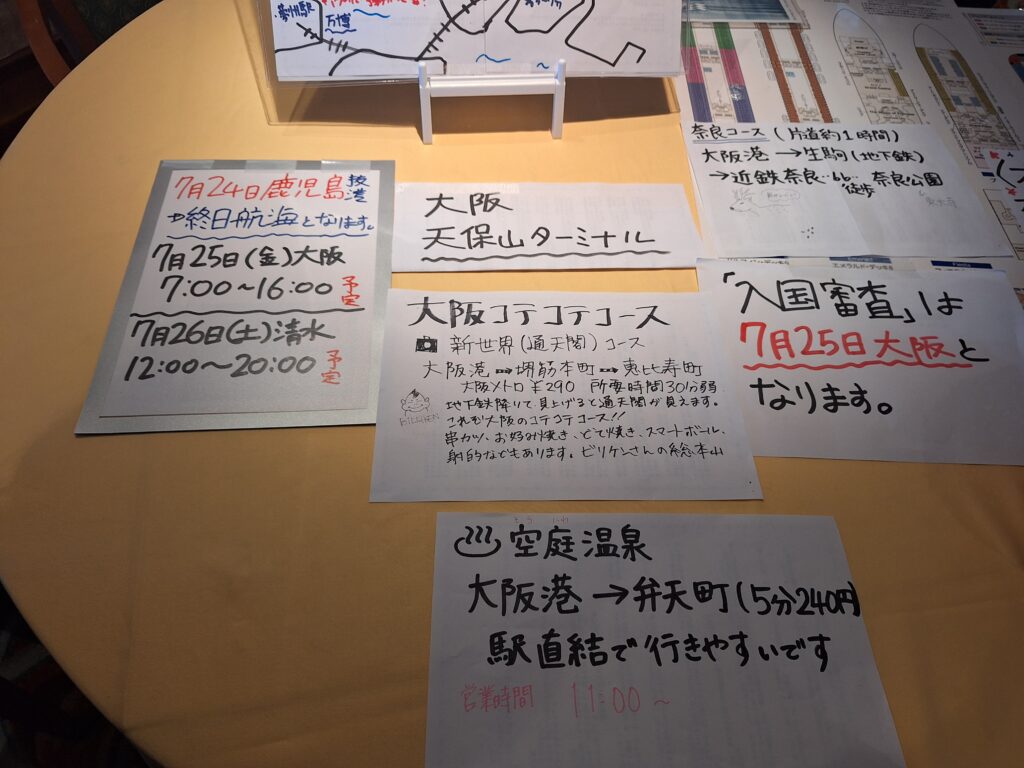 万博
7月24日鹿児島抜港
→終日航海となります。
7月25日(金)大阪
7:00〜16:00予定
7月26日(土)清水
12:00〜20:00予定
大阪
天保山ターミナル
奈良コース(片道約1時間)
大阪港→生駒(地下鉄)
→近鉄奈良‥徒歩‥奈良公園
東大寺
「入国審査」は
7月25日大阪と
なります。
大阪コテコテコース
新世界(通天閣)コース
大阪港→堺筋本町→恵比寿町
大阪メトロ¥290 所要時間30分弱
地下鉄降りて見上げると通天閣が見えます。
これも大阪のコテコテコース!!
串カツ、お好み焼き、どて焼き、スマートボール、
射的などもあります。ビリケンさんの総本山
BILLIKEN
空庭温泉
大阪港→弁天町(5分240円)
駅直結で行きやすいです
営業時間 11:00〜